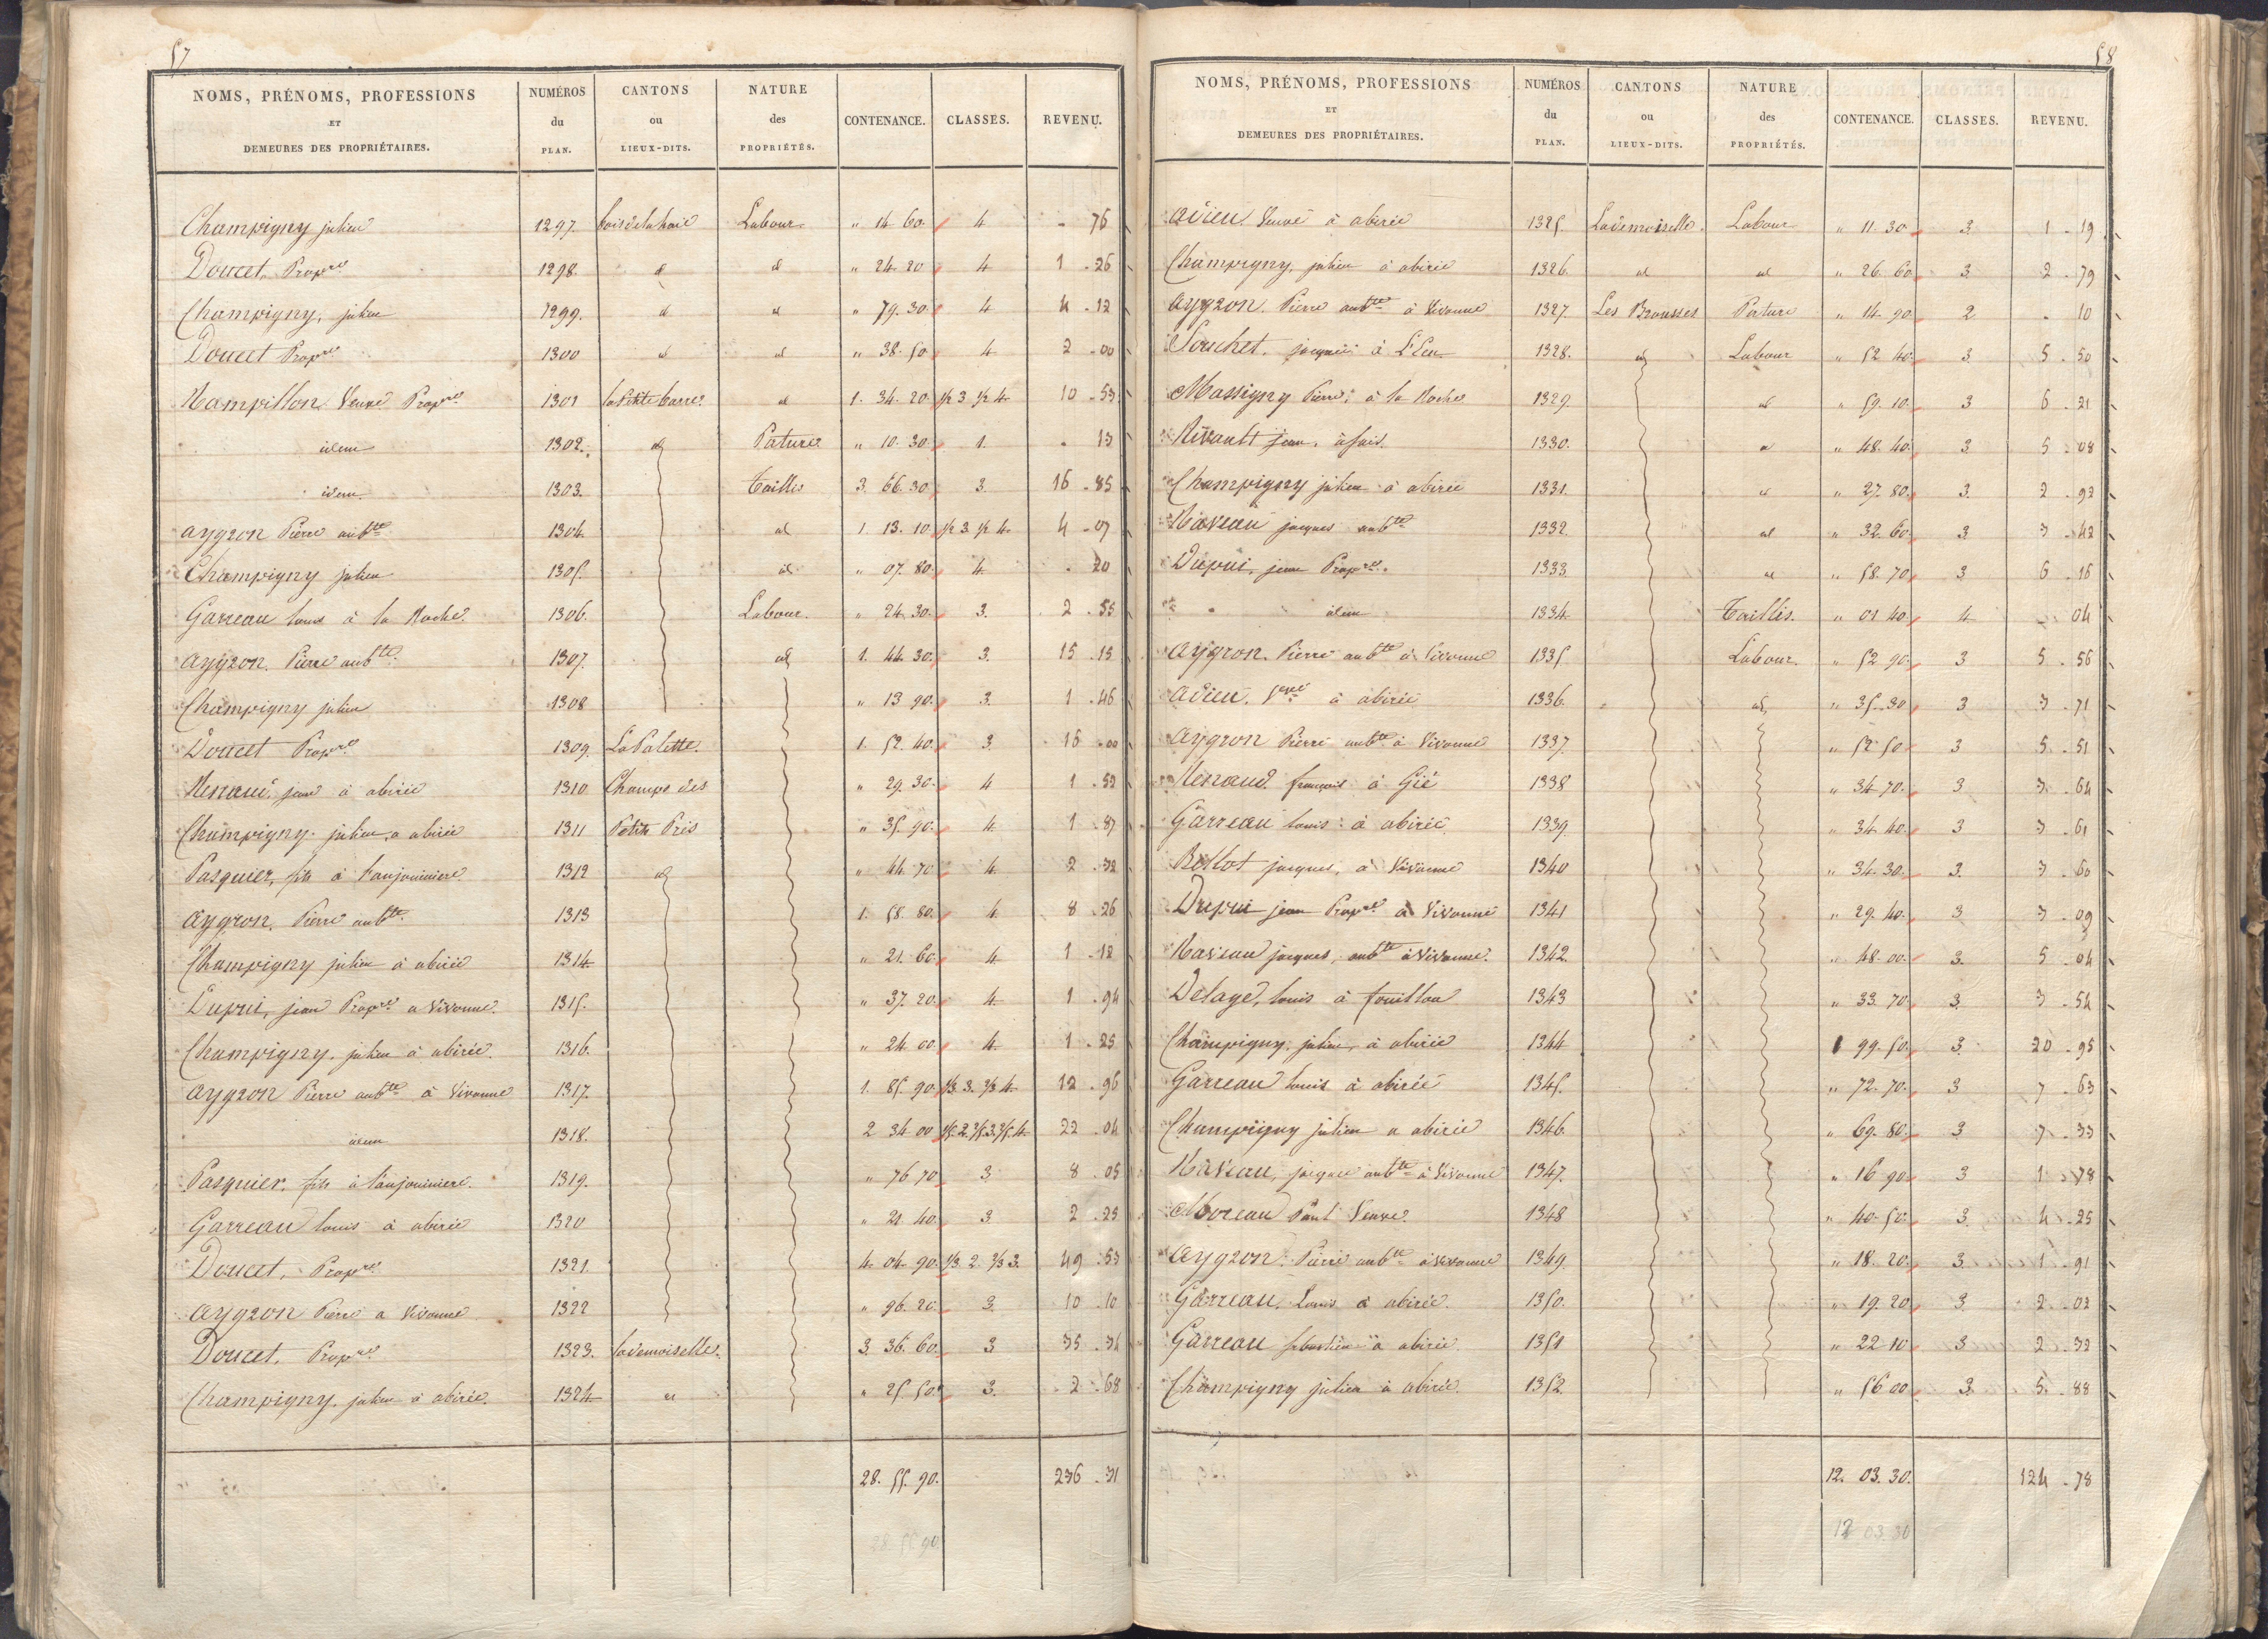 57
NOMS, PRÉNOMS, PROFESSIONS ET DEMEURES DES PROPRIÉTAIRES. NUMÉROS du PLAN. CANTONS ou LIEUX-DITS. NATURE des PROPRIÉTÉS. CONTENANCE. CLASSES. REVENU.
Champigny julien 1297. bois de la haie Labour " 14 60. 4 - 76
Doucet, Propre 1298. id id " 24. 20 4 1 - 26
Champigny, julien 1299. id id " 79. 30. 4 4 - 12
Doucet Propre 1300 id id " 38. 50 4 2 - 00
Rampillon Veuve Propre 1301 la Petite barre id 1. 34. 20. 1/2 3 1/2 4 10 - 53
idem 1302. id Pature " 10. 30. 1. - 13
idem 1303. Taillis 3. 66. 30. 3. 16 - 85
aygron Pierre aubte 1304. id 1. 13. 10. 1/2 3. 1/2 4. 4 - 07
Champigny julien 1305. id " 07. 80. 4. - 20
Garreau louis à la Roche. 1306. Labour. " 24. 30. 3. 2 - 55
aygron. Pierre aubte 1307. id 1. 44. 30. 3. 15 - 15
Champigny julien 1308 " 13 90. 3. 1 - 46
Doucet Propre 1309. La Palette. 1. 52. 40. 3. 16 - 00
Renaud, jean à abirée 1310 Champs des " 29. 30. 4 1 - 52
Champigny. julien, a abirée 1311 Petits Prés " 35. 90. 4. 1 - 87
Pasquier, fils à l'anjouiniere. 1312 id " 44. 70. 4. 2 - 32
aygron. Pierre aubte 1313 1. 58. 80. 4. 8 - 26
Champigny julien à abirée 1314 " 21. 60. 4. 1 - 12
Dupui, jean Propre a Vivonne. 1315. " 37. 20. 4. 1 - 94
Champigny. julien à abirée. 1316. " 24 00. 4. 1 - 25
aygron Pierre aubte à Vivonne 1317. 1. 85. 90. 1/3. 3. 2/3 4. 12 - 96
idem 1318. 2 34 00 1/5. 2. 2/5 3. 2/5. 4. 22 - 04
Pasquier. fils à l'anjouiniere. 1319. " 76 70 3 8 - 05
Garreau louis à abirée 1320 " 21 40. 3. 2 - 25
Doucet, Propre 1321. 4. 04. 90. 1/3. 2. 2/3 3. 49 - 53
aygron Pierre a Vivonne 1322 " 96. 20. 3. 10 - 10
Doucet. Propre 1323. lademoiselle. 3. 36. 60. 3 35 - 34
Champigny. julien à abirée. 1324. id " 25 50. 3. 2 - 68
28. 55. 90. 236 - 31
28 55 90
58
NOMS, PRÉNOMS, PROFESSIONS ET DEMEURES DES PROPRIÉTAIRES. NUMÉROS du PLAN. CANTONS ou LIEUX-DITS. NATURE des PROPRIÉTÉS. CONTENANCE. CLASSES. REVENU.
adieu. Veuve à abirée 1325. Lademoiselle. Labour " 11. 30 3. 1 - 19
Champigny, julien à abirée 1326. id id " 26. 60 3. 2 - 79
aygron. Pierre aubte à Vivonne 1327. Les Brousses Pature " 14. 90. 2 - 10
Souchet. jacques à 1328. id Labour " 52 40. 3. 5 - 50
Massigny Pierre, à la Roche 1329. id " 59. 10. 3 6 - 21
Rivault jean, à 1330. id " 48. 40. 3 5 - 08
Champigny julien à abirée 1331. id " 27. 80. 3. 2 - 92
Raveau jacques aubte 1332. id " 32. 60. 3 3 - 42
Dupui, jean Propre. 1333 id " 58. 70. 3 6 - 16
idem 1334 Taillis. " 01 40. 4 - 04
aygron. Pierre aubte à Vivonne 1335. Labour. " 52 90. 3 5 - 56
adieu. Veuve à abirée 1336. id " 35. 30 3 3 - 71
aygron Pierre aubte à Vivonne 1337. " 52 50 3 5 - 51
Renaud. françois à Gié 1338 " 34 70. 3 3 - 64
Garreau louis à abirée 1339. " 34 40. 3 3 - 61
Bellot jacques, à Vivonne 1340 " 34. 30. 3. 3 - 60
Dupui jean Propre à Vivonne 1341 " 29. 40. 3 3 - 09
Raveau jacques, aubte à Vivonne. 1342. " 48. 00. 3. 5 - 04
Delage, louis à fouillou 1343 " 33. 70. 3. 3 - 54
Champigny. julien, à abirée 1344 1 99. 50. 3. 20 - 95
Garreau louis à abirée 1345. " 72. 70. 3 7 - 63
Champigny julien a abirée 1346. " 69. 80. 3 7 - 33
Raveau, jacques aubte à Vivonne 1347. " 16 90. 3 1 - 78
Moreau Paul Veuve. 1348 " 40. 50. 3. 4 - 25
aygron. Pierre aubte à Vivonne 1349. " 18. 20. 3. 1 - 91
Garreau. Louis à abirée. 1350. " 19. 20 3. 2 - 02
Garreau sebastien à abirée. 1351 " 22 10 3 2 - 32
Champigny julien à abirée. 1352. " 56 00 3. 5 - 88
12. 03. 30. 124 - 78
12 03 30